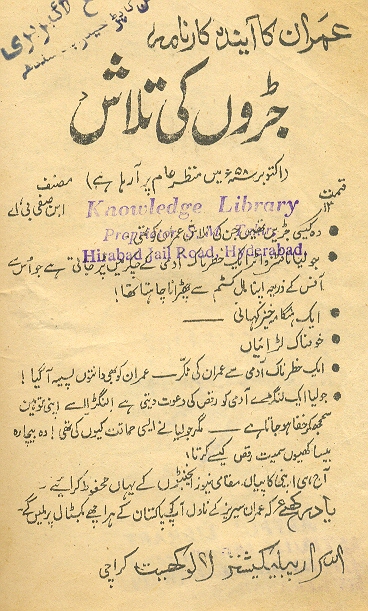 عمران کا آیندہ کارنامہ
جڑوں کی تلاش
(اکتوبر سنہ ۵۸ء میں منظرِ عام پر آرہا ہے) مصنف
قیمت
ابن صفی بی، اے
Knowledge Library
وہ کیسی جڑیں تھیں جن کی تلاش عمران کو تھی
Hirabad Jail Road, Hyderabad.
جولیا نافٹزواٹر ایک خطرناک آدمی کے میں پڑ جاتی ہے جو اس سے
آفس کے ذریعہ اپنا مال کسٹم سے چھڑانا چاہتا تھا!
ایک ہنگامہ خیز کہانی
خوفناک لڑائیاں
ایک خطرناک آدمی سے عمران کی ٹکر — عمران کو بھی دانتوں پسینہ آ گیا!
جولیا ایک لنگڑے آدمی کو رقص کی دعوت دیتی ہے لنگڑا اسے اپنی توہین
سمجھ کر خفا ہو جاتا ہے — مگر جولیا نے ایسی حماقت کیوں کی تھی! وہ بیچارہ
بیساکھیوں سمیت رقص کیسے کرتا؟
آج ہی اپنی کاپیاں مقامی نیوز ایجنٹوں کے یہاں محفوظ کرائیے -
یاد رکھیے کہ عمران سیریز کے ناول آپکو پاکستان کے ہر اچھے بکسٹال پر ملیں گے
اسرار پبلیکیشنز لالوکھیت کراچی